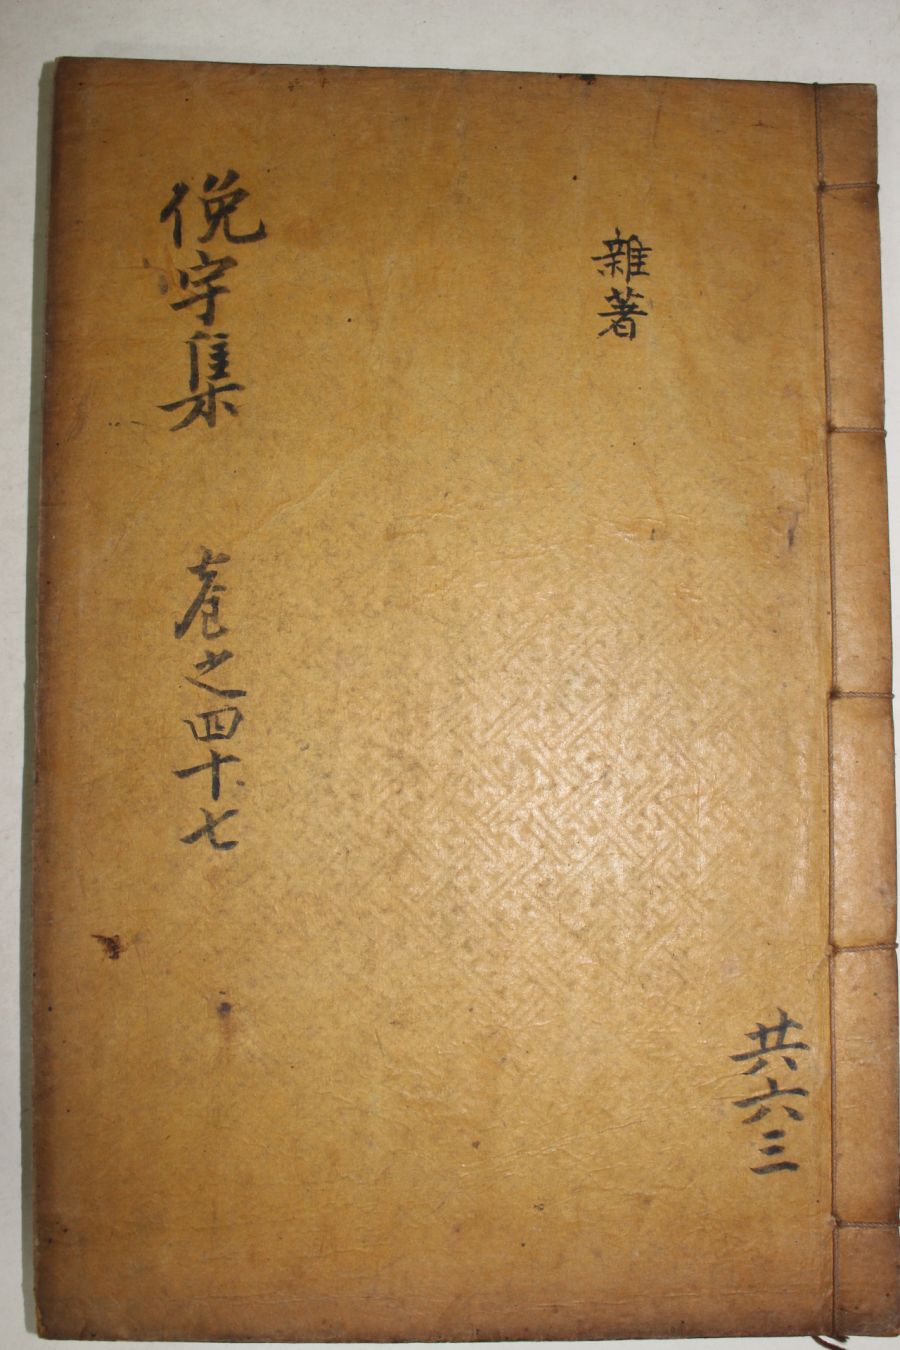 俛宇集 卷之四十七
雜著
共六三